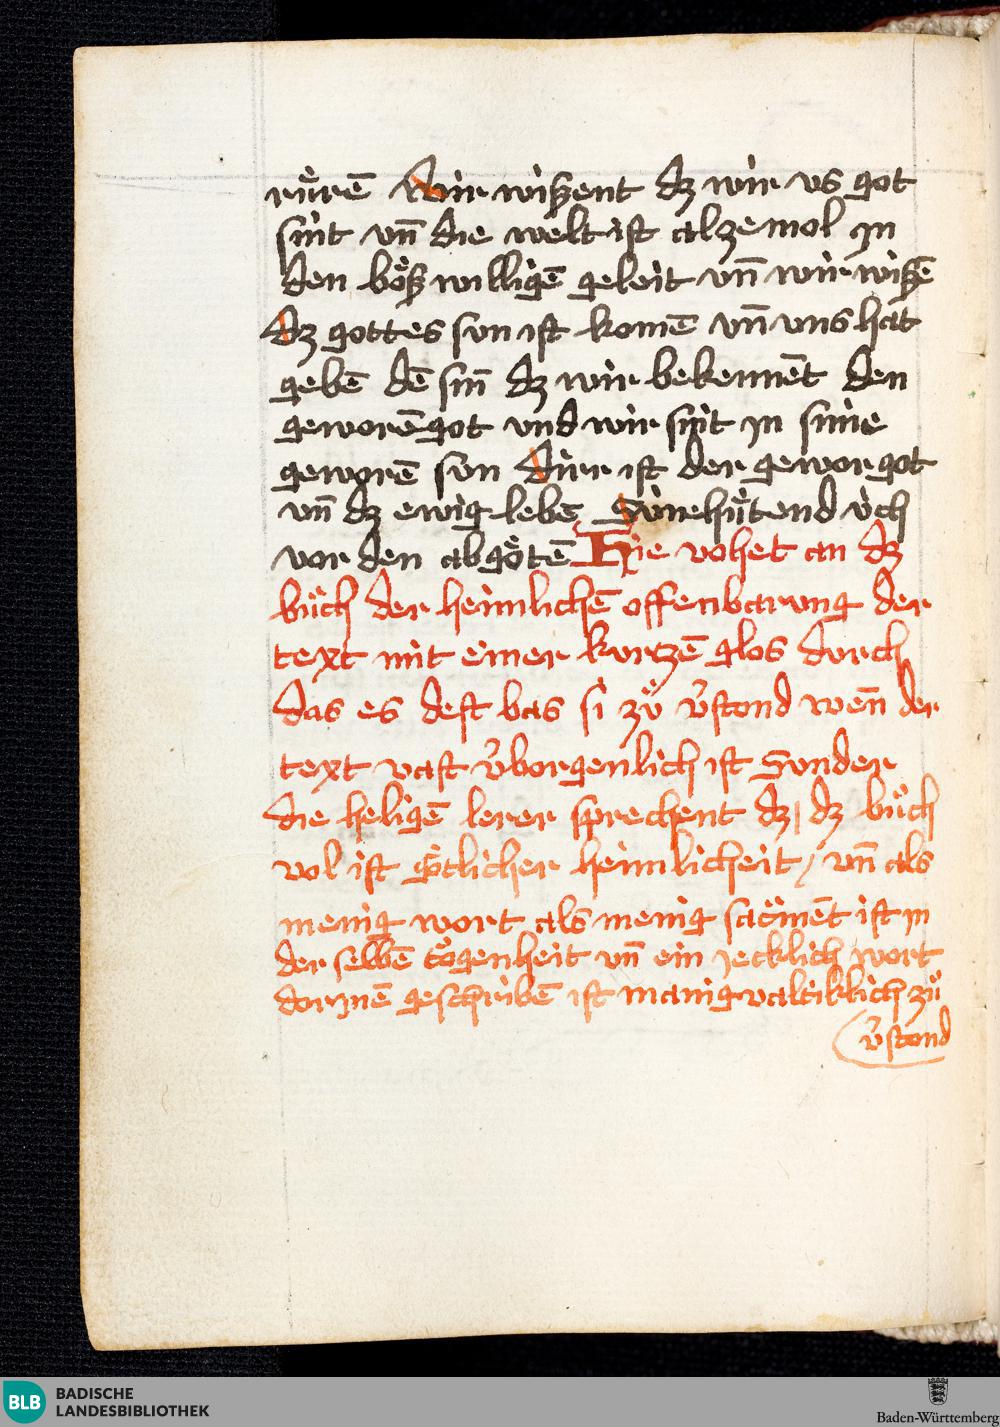 rüͤrē Wir wissent dz wir vs got
sint vn̄ die welt ist alzemol in
den boͤß willigē geleit vn̄ wir wissē
dz gottes sun ist komē vn̄ uns hat
gebē dē sin̄ dz wir bekennēt den
geworē got vnd wir sint in sinē
geworē sun dirr ist der gewor got
vn̄ dz ewig lebē Süne hüͤtend üch
vor den abgoͤtē Hie vohet an dz
buͦch der heimlichē offenbarung der
text mit einer kurtzē glos durch
das es dest bas si zuͦ v̓stond wen̄ der
text vast v̓borgenlich ist Sunder
die heligē lerer sprechent dz / dz buͦch
vol ist goͤtlicher heimlicheit / vn̄ als
menig wort als menig sacͣmēt ist in
der selbē toͤgenheit vn̄ ein jecklich wort
dorjnē geschribē ist manigvaltiklich zuͦ
v̓stond
BLB BADISCHE
LANDESBIBLIOTHEK
Baden-Württemberg